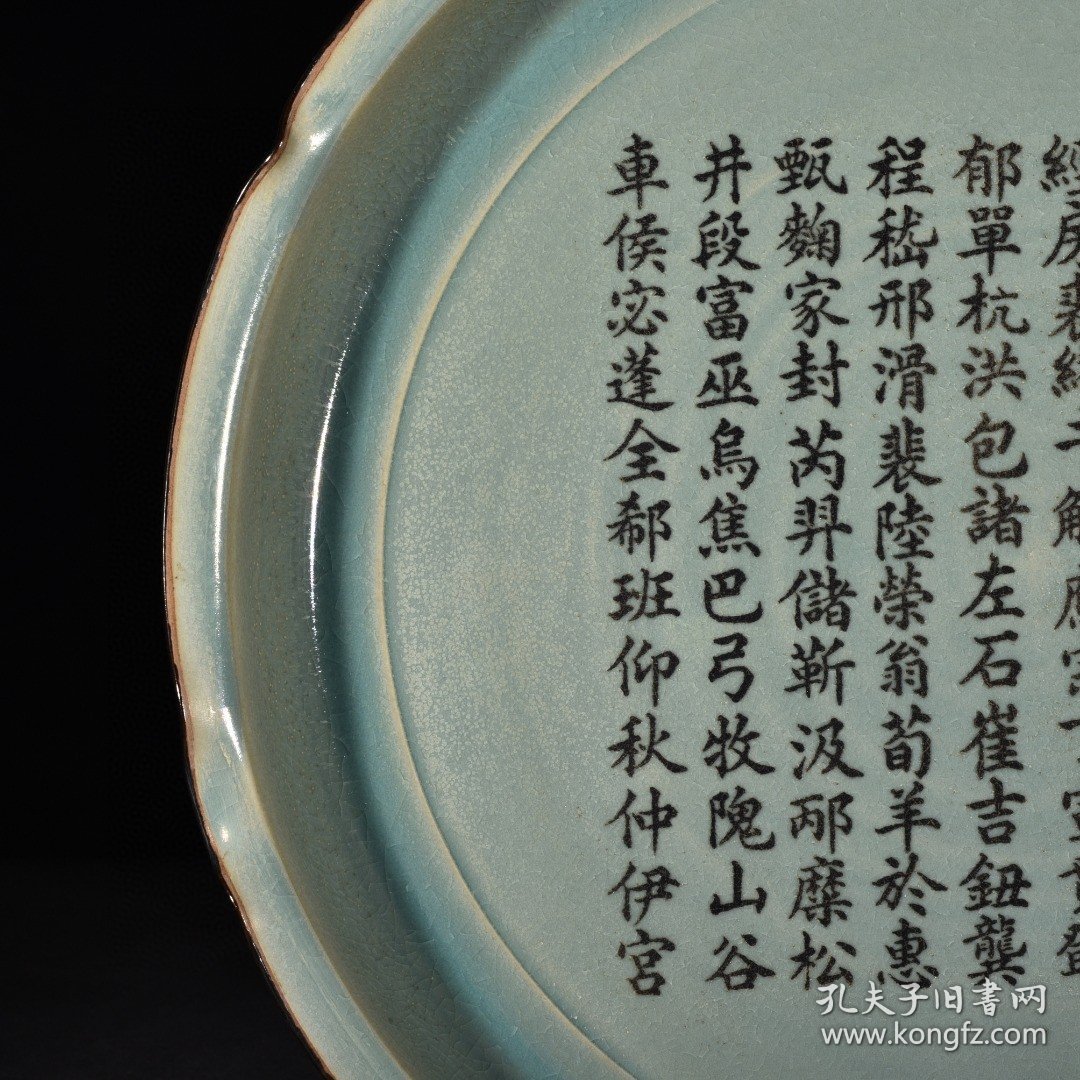 經房裘解
郁單杭洪包諸左石崔吉鈕龔
程嵇邢滑裴陸榮翁荀羊於惠
甄麴家封芮羿儲靳汲邴糜松
井段富巫烏焦巴弓牧隗山谷
車侯宓蓬全郗班仰秋仲伊宮
孔夫子旧書网
www.kongfz.com